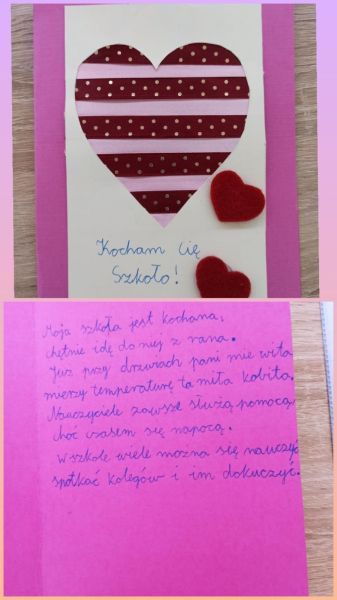 Kocham Cię
Szkoło!
Moja szkoła jest kochana,
chętnie idę do niej z rana.
Już przy drzwiach pani mie wita
mierzy temperaturę ta miła kobita.
Nauczyciele zawsze służą pomocą
choć czasem się napocą.
W szkole wiele można się nauczyć
spotkać kolegów i im dokuczyć.